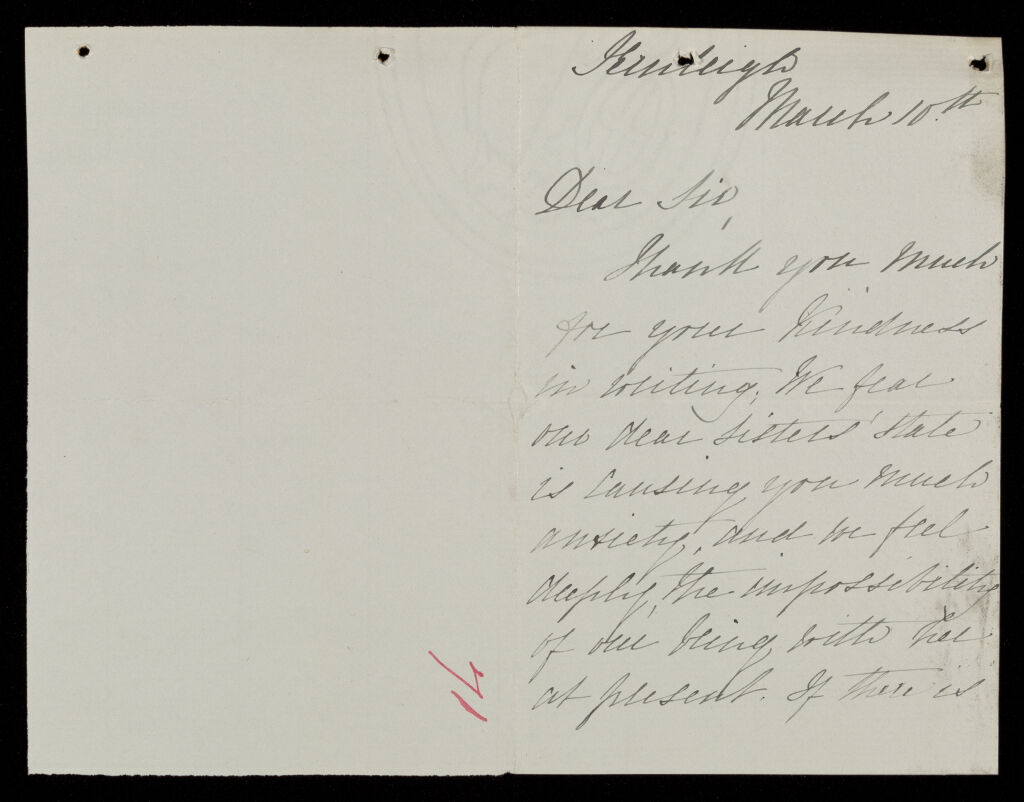 March 10.th
Dear Sir,
Thank you much
for your kindness
in writing. We fear
our dear sisters' state
is causing you much
anxiety, and we feel
deeply, the impossibility
of our being with her
at present. If there is
14